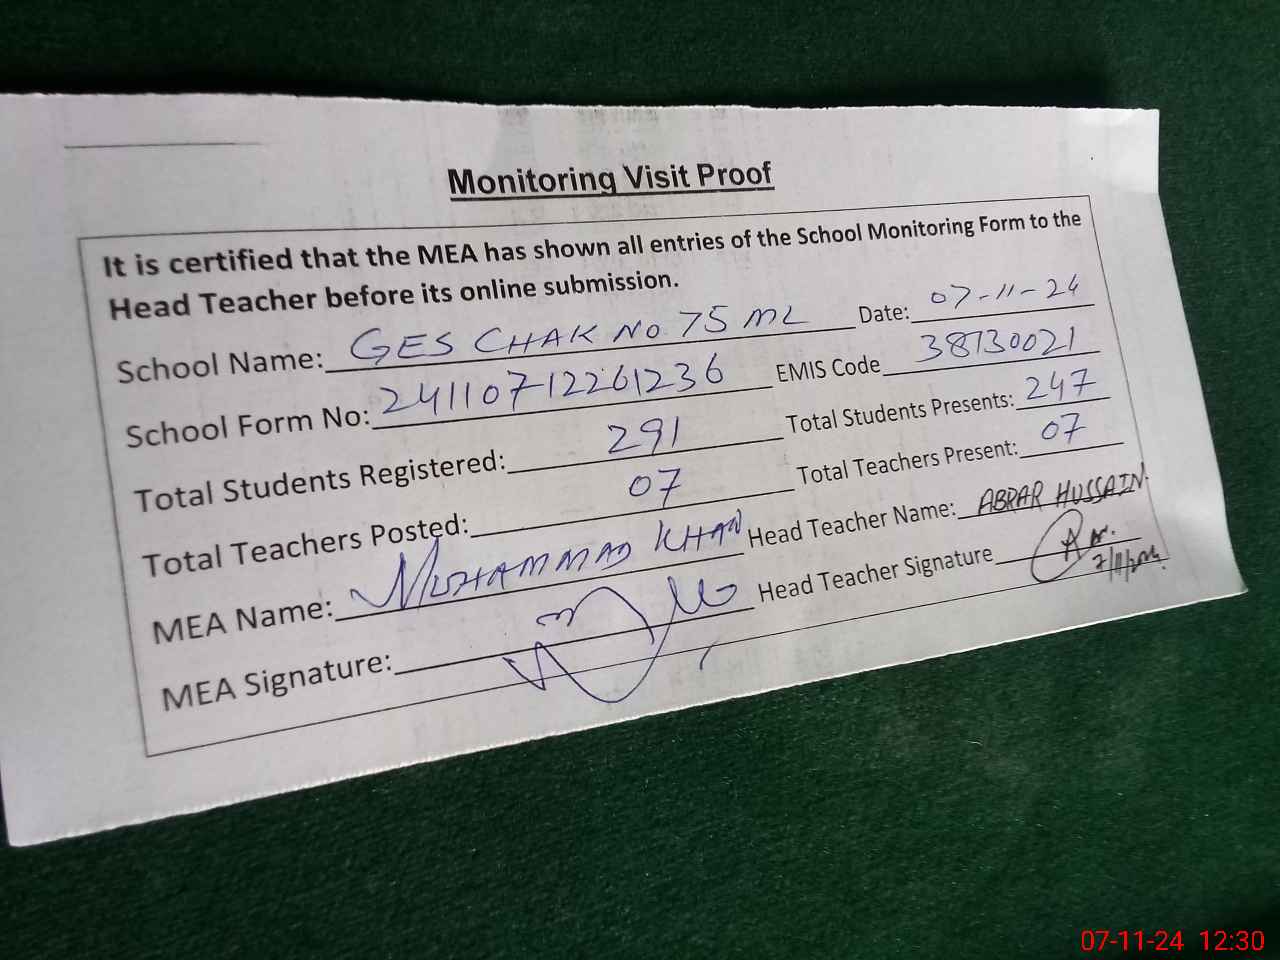 Monitoring Visit Proof
It is certified that the MEA has shown all entries of the School Monitoring Form to the
Head Teacher before its online submission.
School Name: GES CHAK NO 75 ML Date: 07-11-24
School Form No: 24110712261236 EMIS Code 38130021
Total Students Registered: 291 Total Students Presents: 247
Total Teachers Posted: 07 Total Teachers Present: 07
MEA Name: MUHAMMAD KHAN Head Teacher Name: ABRAR HUSSAIN
MEA Signature: Head Teacher Signature
07-11-24 12:30